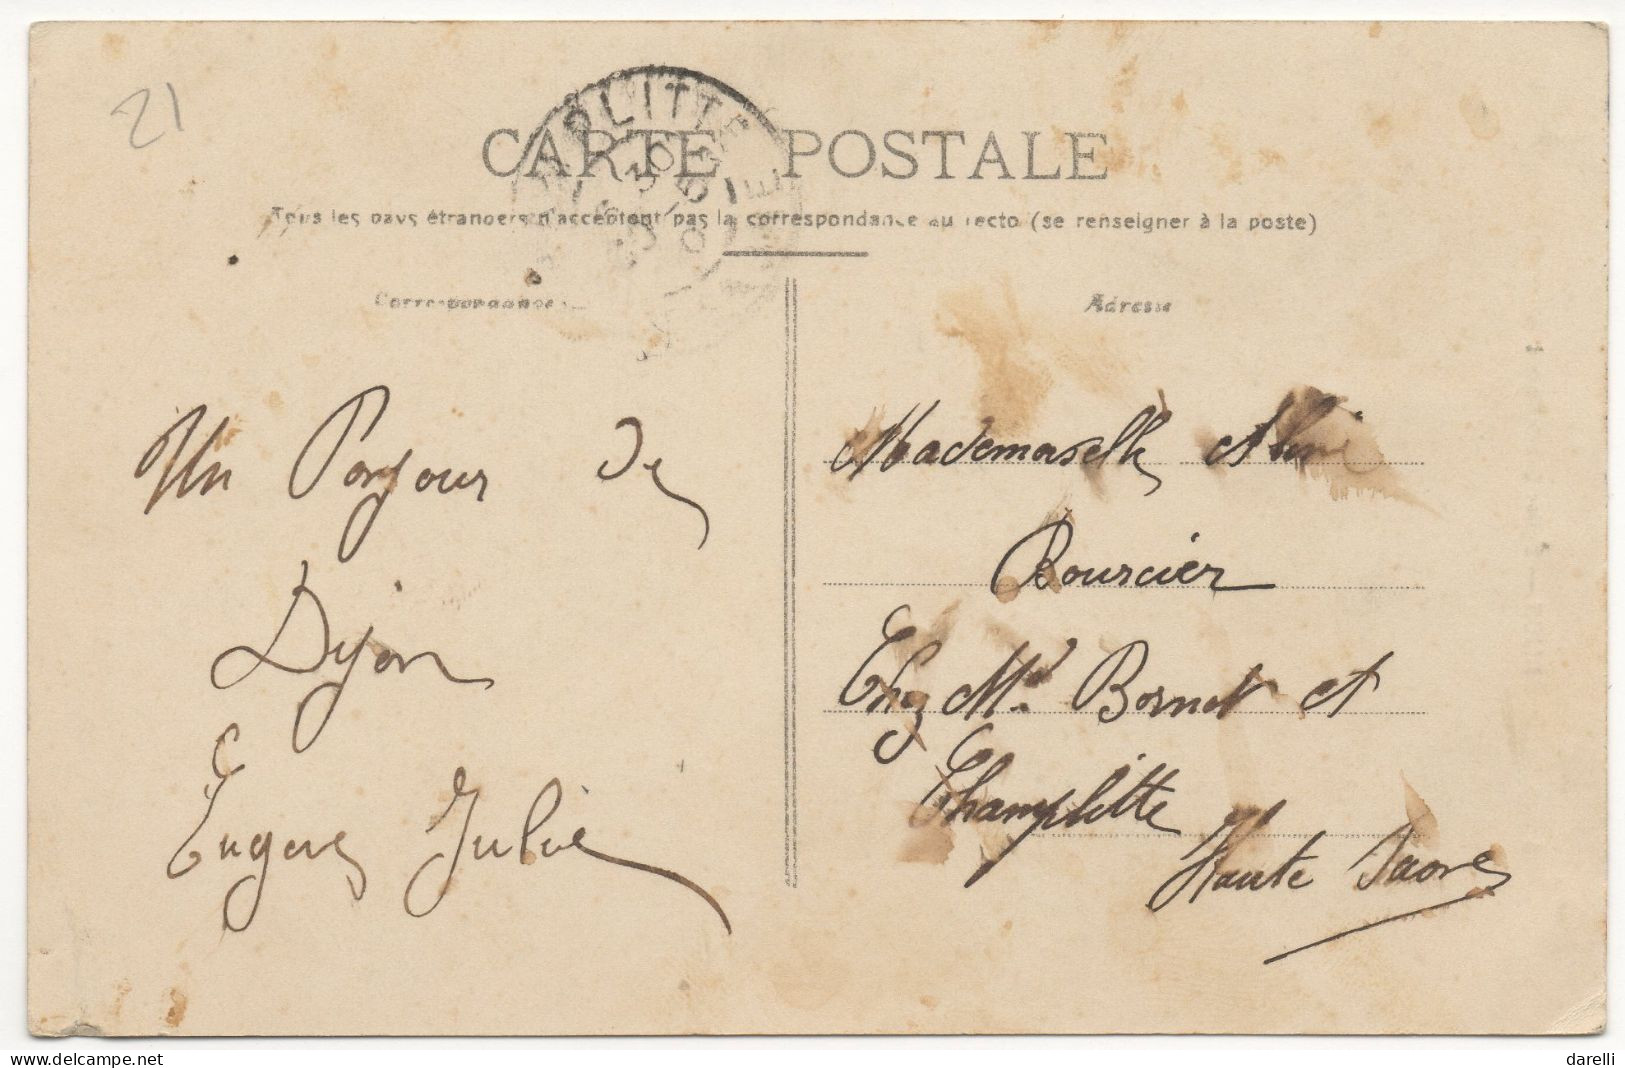 21
CHAMPLITTE
CARTE POSTALE
Tous les pays étrangers n'acceptent pas la correspondance au recto (se renseigner à la poste)
Correspondance
Adresse
Un Bonjour de
Dijon
Eugene Julie
Mademoiselle
Bourcier
Chez Mr Bornet et
Champlitte
Haute Saone
darelli